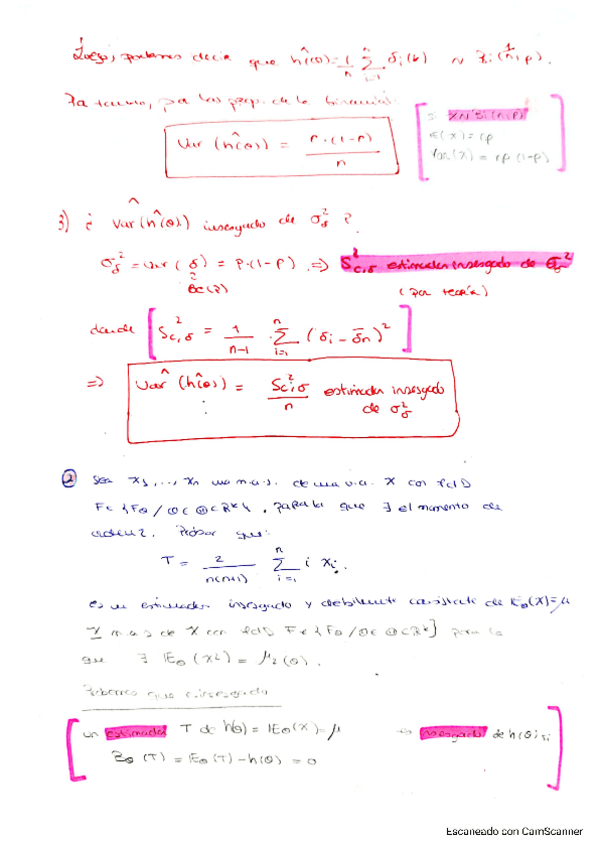 Luego, podemos decir que ĥ(θ) = 1/n Σ_{i=1}^{n} δi(k) ~ Bi(1/n, p).
Por tanto, por las prop. de la binomial:
Var (ĥ(θ)) = p·(1-p) / n
Si X~Bi(n,p)
E(X) = np
Var(X) = np (1-p)
3) ¿ Var^(ĥ(θ)) insesgado de σ²_δ ?
σ²_δ = Var (δ) = p·(1-p) => S²_{c,δ} estimador insesgado de σ²
(por teoría)
donde [ S²_{c,δ} = 1/(n-1) · Σ_{i=1}^{n} (δi - δ̄n)² ]
=> Var^ (ĥ(θ)) = S²_{c,δ} / n estimador insesgado de σ²_δ
② Sea X1, ..., Xn una m.a.s. de una v.a. X con
F ∈ {Fθ / θ ∈ Θ ⊂ R^k}, para la que ∃ el momento de
orden 2. Probar que:
T = 2/(n(n+1)) Σ_{i=1}^{n} i Xi.
es un estimador insesgado y débilmente consistente de Eθ(X)=μ
m.a.s de X con F ∈ {Fθ/θ ∈ Θ ⊂ R^k} para la
que ∃ Eθ(X²) = μ2(θ).
Probemos que insesgado
un estimador T de h(θ) = Eθ(X) = μ es insesgado de h(θ) si
(T) = Eθ(T) - h(θ) = 0
Escaneado con CamScanner